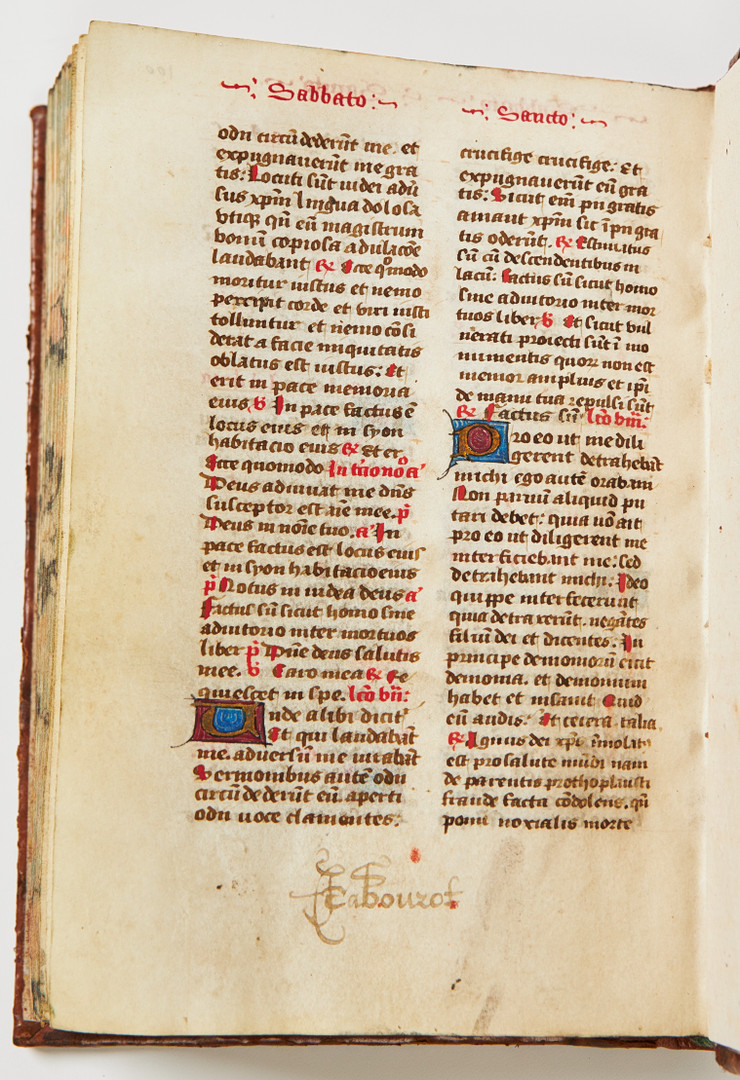 Sabbato
Sancto
odii circūdederūt me et
expugnauerūt me gra
tis: Locuti sūt uidei adū
sus xpm̄ lingua dolosa
vtiqꝫ qn̄ eū magistrum
bonū copiosa adulacōe
laudabant ℟ Ecce qͦmodo
moritur iustus et nemo
percipit corde et viri iusti
tolluntur et nemo cōsi
derat a facie iniquitatis
oblatus est iustus: Et
erit in pace memoria
eius ℣ In pace factus ē
locus eius et in syon
habitacio eius ℟ Et er
Ecce quomodo In
Deus adiuuat me dn̄s
susceptor est aīe mee. p̄
Deus in noīe tuo. a̓ In
pace factus est locus eius
et in syon habitacio eius
p̄ Notus in iudea deus a̓
Factus sū sicut homo sine
adiutorio inter mortuos
liber p̄ Dn̄e deus salutis
mee. ℣ Caro mea ℟ Re
quiescet in spe. lcō vii:
Unde alibi dicit̉
Et qui laudabāt
me. aduersū me iurabāt
Sermonibus autē odii
circūdederūt eū. aperti
odii uoce clamantes:
crucifige crucifige. Et
expugnauerūt eū gra
tis: Sicut eīm
amant xpm̄ sic
tis oderūt. ℟ Estimatus
sū cū descendentibus in
lacū: Factus sū sicut homo
sine adiutorio inter mor
tuos liber ℣ Et sicut vul
nerati proiecti sūt ī mo
numentis quoꝝ non est
memor amplius et ip̄i
de manu tua repulsi sūt
℟ Factus sū lcō viii:
Pro eo ut me dili
gerent detrahebāt
michi ego autē orabam
Non paruū aliquid pu
tari debet: quia nō ait
pro eo ut diligerent me
interficiebant me: sed
detrahebant michi. Ideo
quippe interfecerunt
quia detraxerūt. negātes
filiū dei et dicentes. In
principe demoniorū eicit
demonia. et demonium
habet et insanit Quid
eū audis: Et cetera talia
℟ Agnus dei xpc̄ īmolatꝰ
est pro salute mūdi nam
de parentis prothoplausti
fraude facta cōdolens. qn̄
pomi noxialis morte
Tabourot